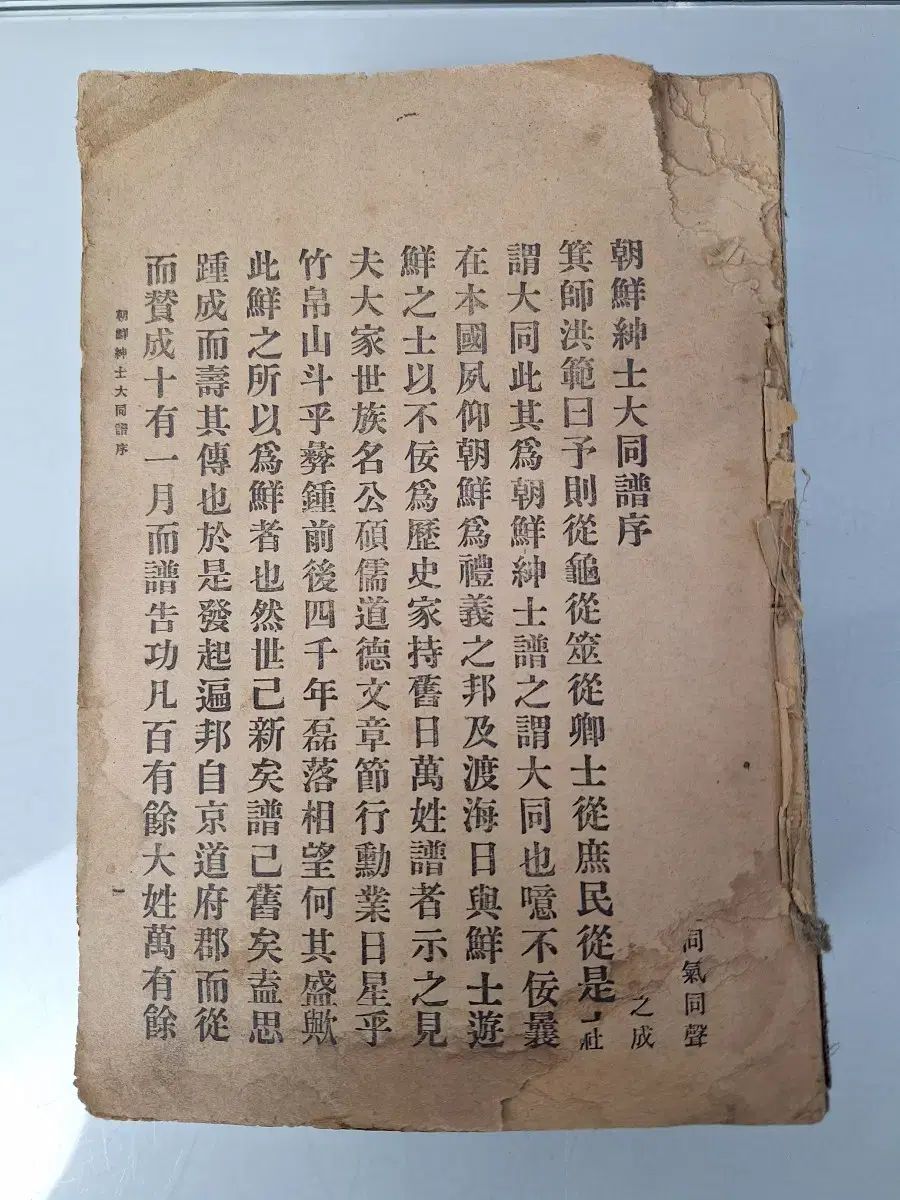 同氣同聲
之成
社
朝鮮紳士大同譜序
箕師洪範曰予則從龜從筮從卿士從庶民從是
謂大同此其爲朝鮮紳士譜之謂大同也噫不佞曩
在本國夙仰朝鮮爲禮義之邦及渡海日與鮮士遊
鮮之士以不佞爲歷史家持舊日萬姓譜者示之見
夫大家世族名公碩儒道德文章節行勳業日星乎
竹帛山斗乎彝鍾前後四千年磊落相望何其盛歟
此鮮之所以爲鮮者也然世己新矣譜己舊矣盍思
踵成而壽其傳也於是發起遍邦自京道府郡而從
而贊成十有一月而譜告功凡百有餘大姓萬有餘
朝鮮紳士大同譜序
一